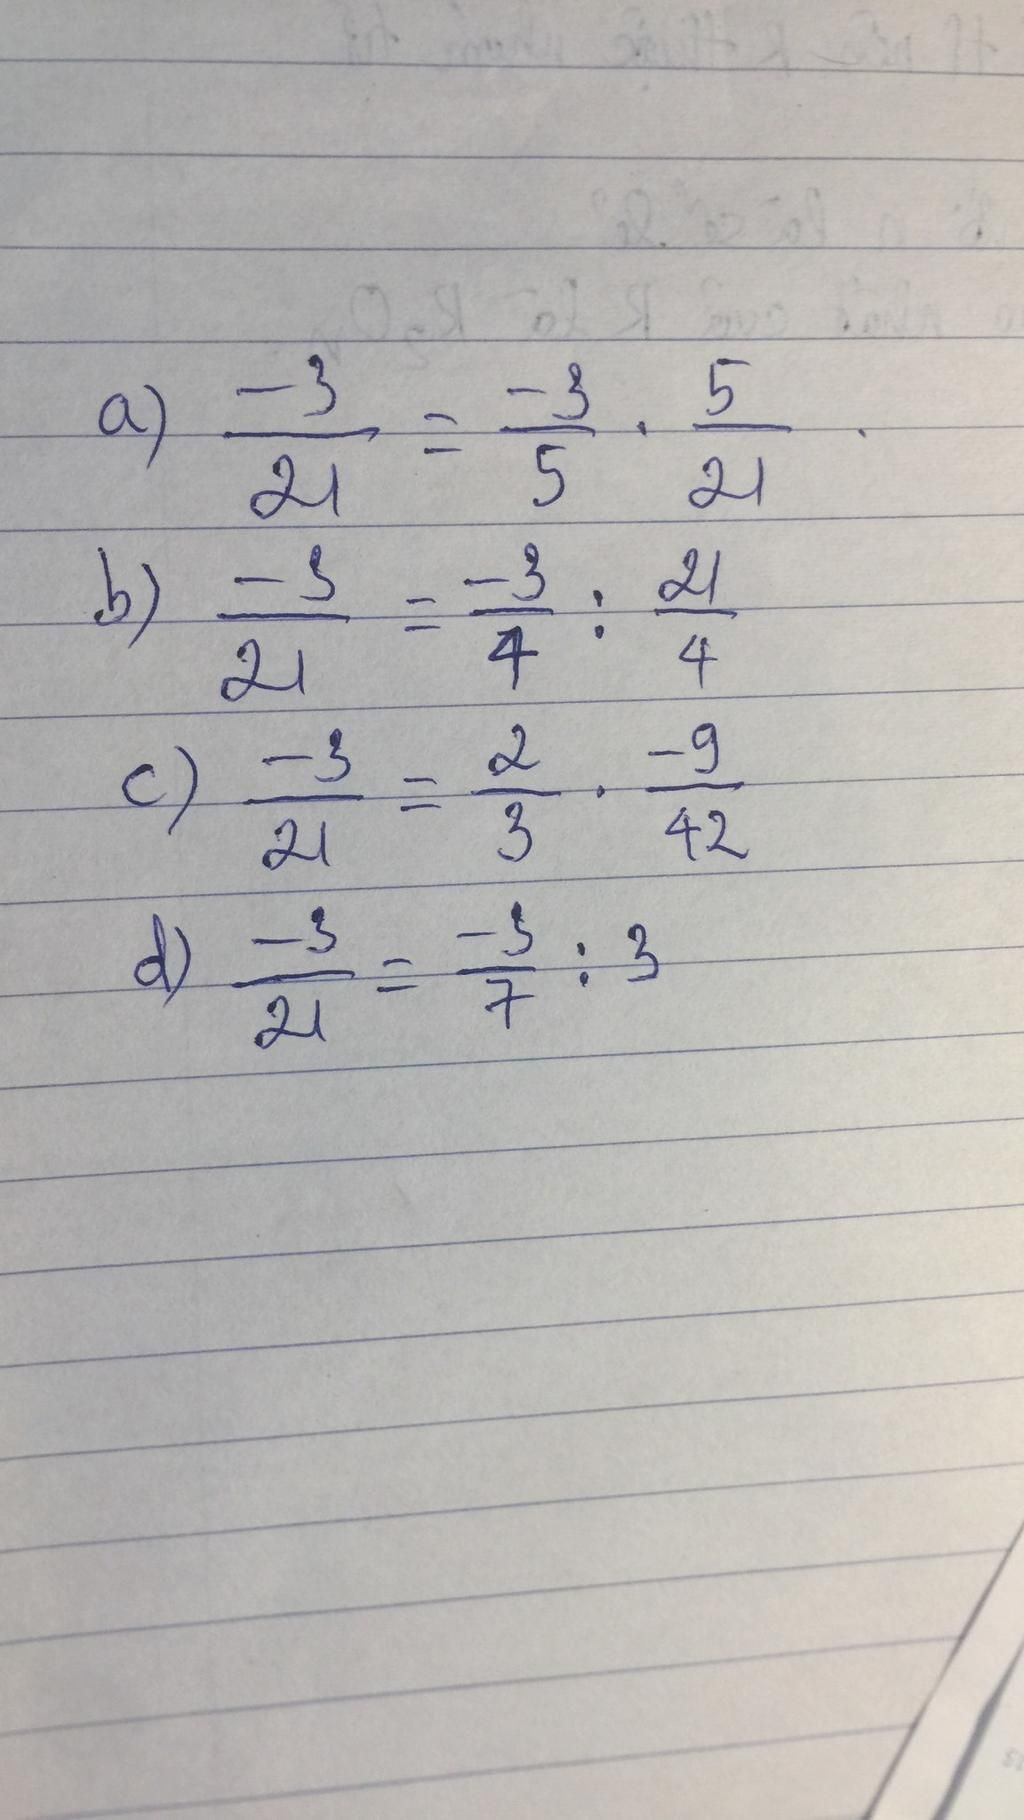 a) -3/21 = -3/5 . 5/21 .
b) -3/21 = -3/4 : 21/4
c) -3/21 = 2/3 . -9/42
d) -3/21 = -3/7 : 3